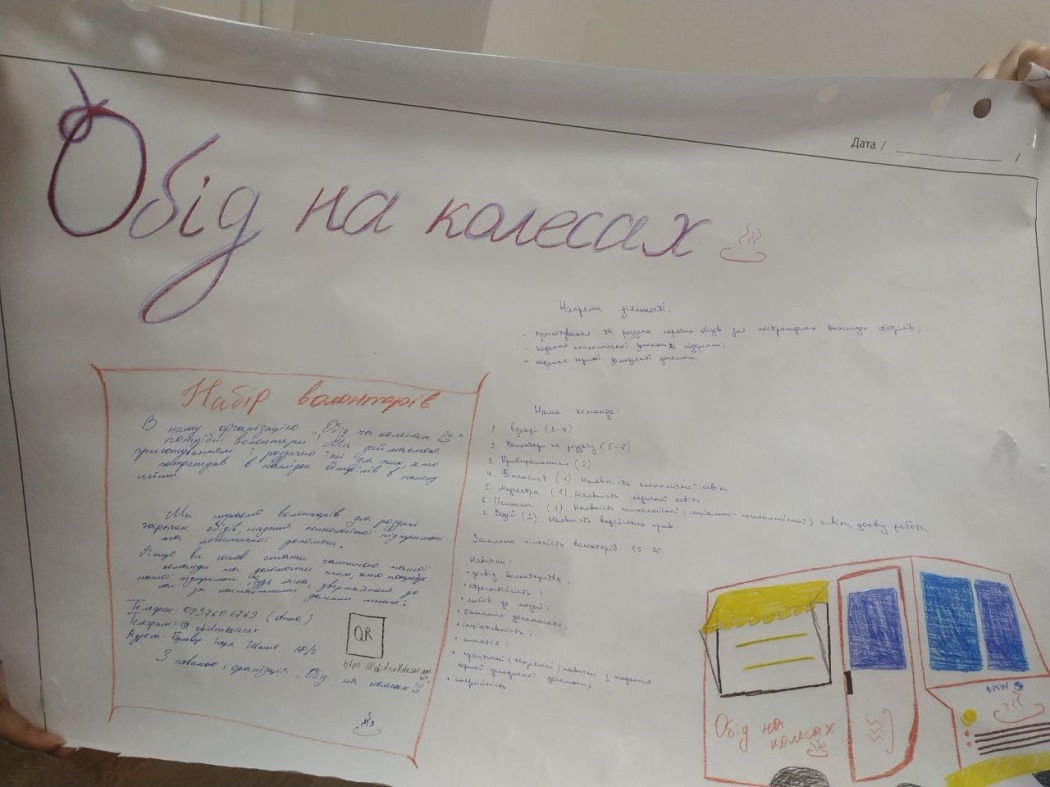 Дата /
/
Обід на колесах
Напрями діяльності:
- приготування та роздача гарячих обідів для постраждалих внаслідок обстрілів;
- надання психологічної підтримки;
- надання першої домедичної допомоги.
Набір волонтерів
В нашу організацію „Обід на колесах"
потрібні волонтери! Ми займаємося
приготуванням і роздачею їжі для тих, хто
постраждав в наслідок обстрілів в нашому
Ми шукаємо волонтерів для роздачі
гарячих обідів, надання психологічної підтримки
та допомоги.
Якщо ви готові стати частиною нашої
команди та допомогти тим, хто потребує
нашої підтримки, будь ласка, звертайтеся до
нас за контактними даними нижче:
Телефон: (Анна)
Телеграм: @
Адреса: бульвар
QR
З повагою, організація „Обід
на колесах"
Наша команда:
1. Кухарі (3-4)
2. Волонтери на роздачу
3. Прибиральники (2)
4. Фінансист (1). Наявність економічної освіти
5. Медсестра (1). Наявність медичної освіти
6. Психолог (1). Наявність психологічної (соціально-психологічної) освіти, досвід роботи
7. Водій (2). Наявність водійських прав
Загальна кількість волонтерів 15-20
Навички:
• досвід волонтерства;
• стресостійкість;
• любов до людей;
• бажання допомагати;
• ініціативність;
• емпатія;
• практичні навички з надання
першої домедичної допомоги;
Обід на
колесах
BMW